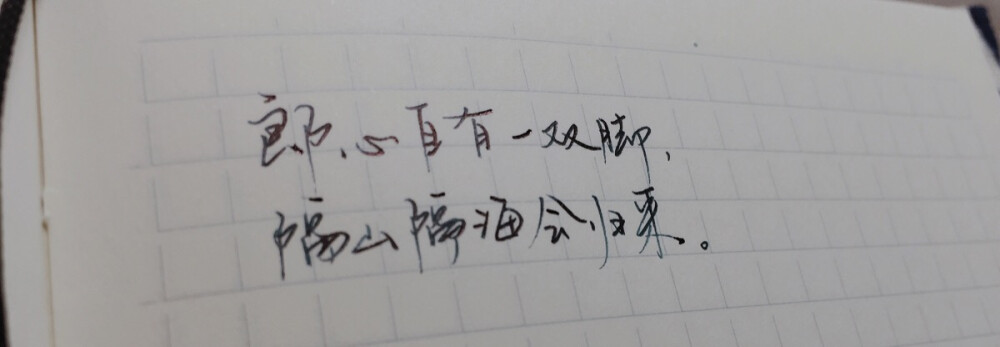 郎心自有一双脚,
隔山隔海会归来。